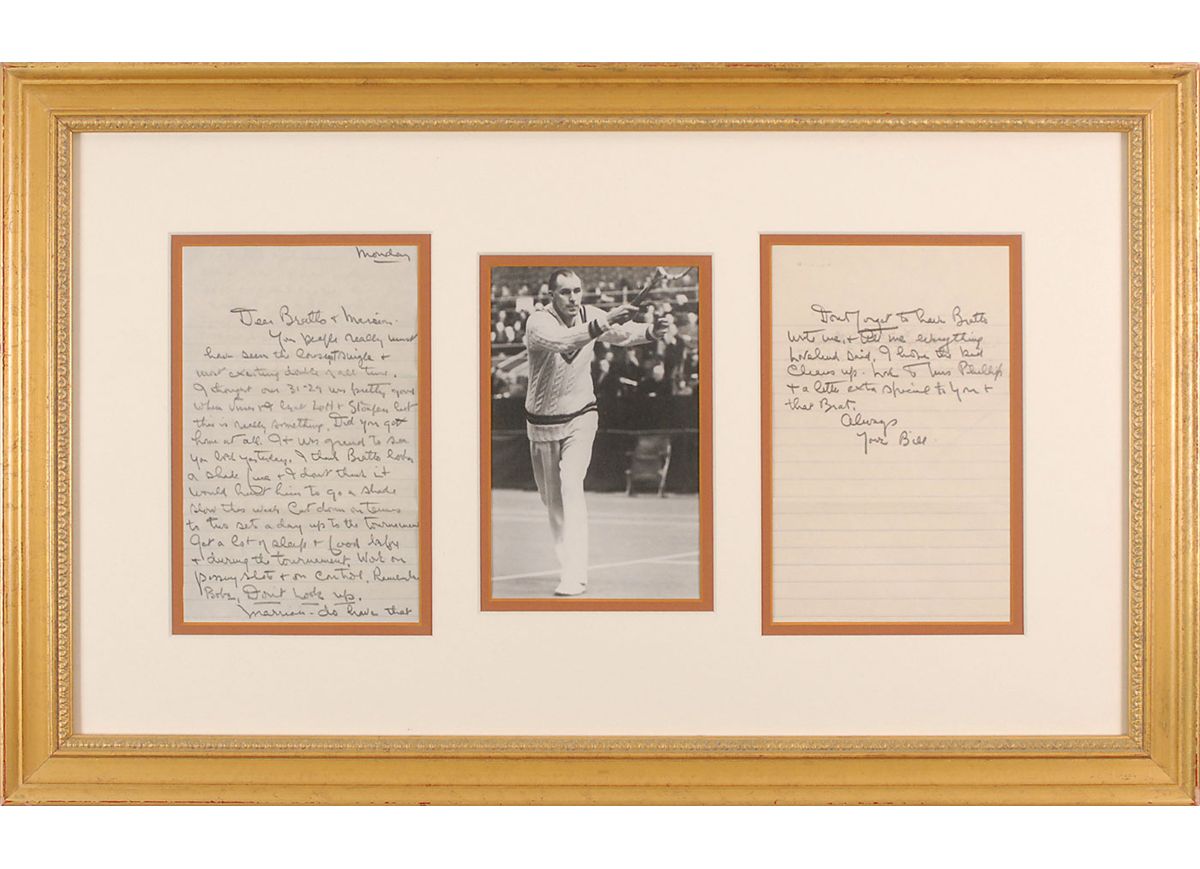 Monday
Dear Bratto & Marrion -
You people really must
have seen the longest single &
most exciting double of all time.
I thought our 31-29 was pretty good
when Vines & I beat Lott & Stoefen but
this is really something. Did you get
home at all. It was grand to see
you both yesterday. I think Bratto looks
a shade fine & I don't think it
would hurt him to go a shade
slow this week. Cut down on tennis
to two sets a day up to the tournament
Get a lot of sleep & food before
& during the tournament. Work on
passing shots & on control. Remember
Bobs, Don't Look up.
Marrion - do have that
Dont forget to have Bratto
write me & tell me everything
Loveland said. I hope the kid
cheers up. Love to Miss Phillips
& a little extra special to you &
that Brat.
Always
Your Bill